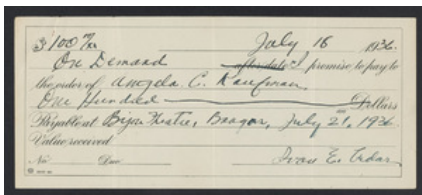 $100 00/xx July 16 1936
On Demand after date I promise to pay to
the order of Angela C. Kaufman
One Hundred Dollars
Payable at Bijou Theatre, Bangor, July 21, 1936
Value received
No Due